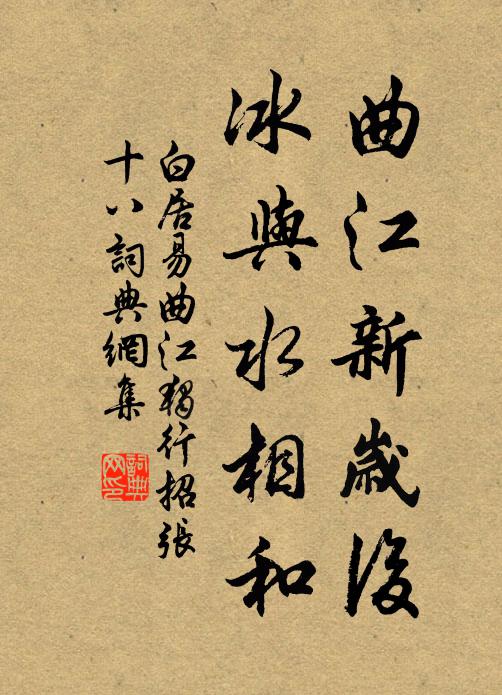 曲江新歲後
冰與水相和
白居易曲江獨行招張
十八詞典網集
詞典
网印